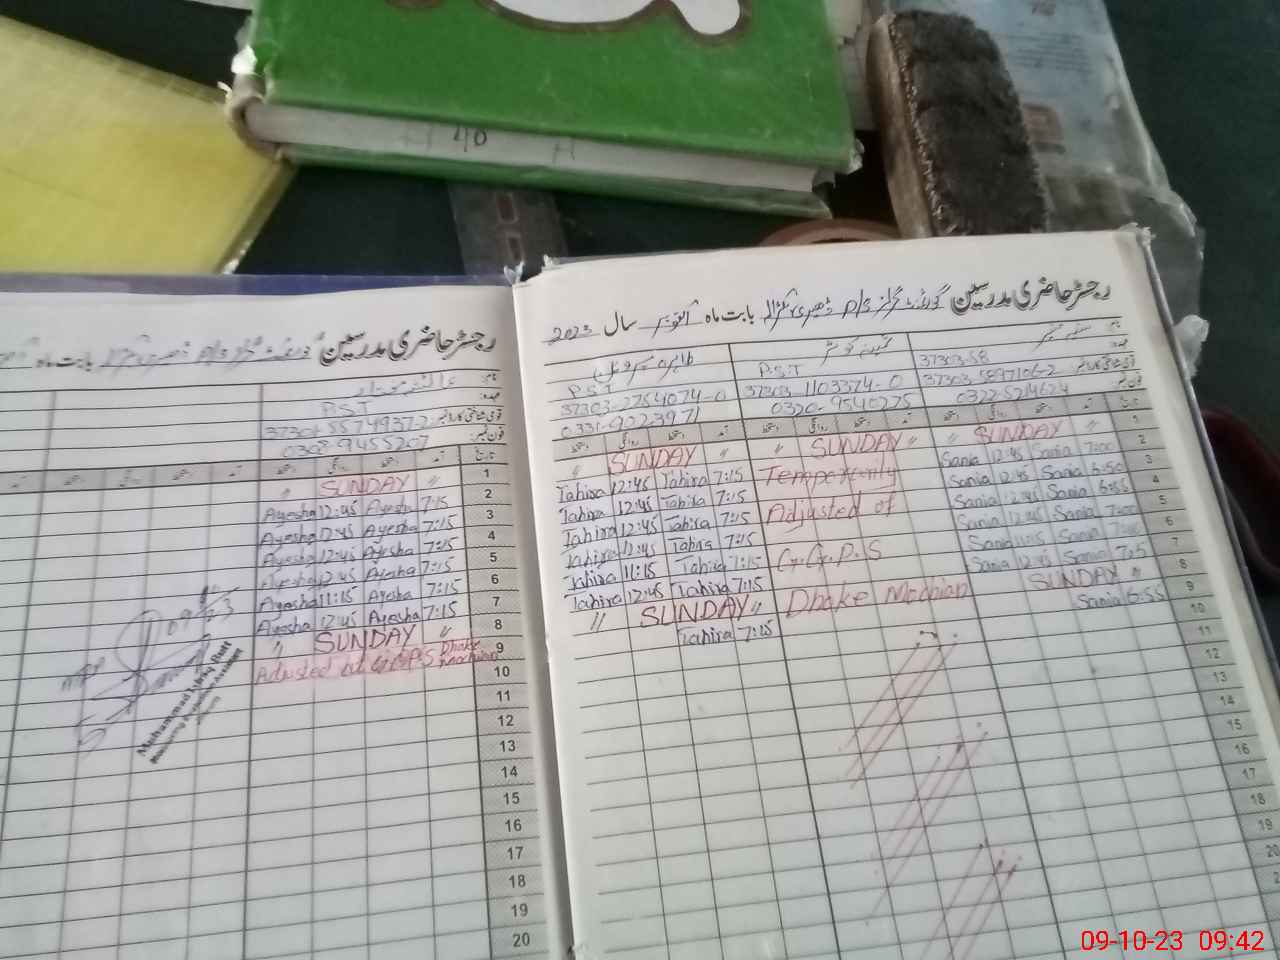 40
رجسٹر حاضری مدرسین
بابت ماہ
PST
37301-5574937-2
0308-9455207
تاریخ
1 " SUNDAY "
2 Ayesha 12:45 Ayesha 7:15
3 Ayesha 12:45 Ayesha 7:15
4 Ayesha 12:45 Ayesha 7:15
5 Ayesha 12:45 Ayesha 7:15
6 Ayesha 11:15 Ayesha 7:15
7 Ayesha 12:45 Ayesha 7:15
8 " SUNDAY "
9 Adjusted at G.G.P.S Dhoke Mochian
10
11
12
13
14
15
16
17
18
19
20
Muhammad
رجسٹر حاضری مدرسین گورنمنٹ گرلز بابت ماہ اکتوبر سال 2023
طاہرہ
PST P.S.T 37303-58
37303-2754074-0 37303-1103374-0 37303-5897106-2
0331-9223971 0320-9540275 0322-5214624
تاریخ
" SUNDAY " " SUNDAY " " SUNDAY " 1
Tahira 12:45 Tahira 7:15 Sania 12:45 Sania 7:00 2
Tahira 12:45 Tahira 7:15 Sania 12:45 Sania 6:50 3
Tahira 12:45 Tahira 7:15 Adjusted of Sania 12:45 Sania 6:55 4
Tahira 12:45 Tahira 7:15 Sania 12:45 Sania 7:00 5
Tahira 11:15 Tahira 7:15 G.G.P.S Sania 11:15 Sania 6
Tahira 12:45 Tahira 7:15 Sania 12:45 Sania 7:05 7
" SUNDAY " Dhoke Mochian SUNDAY " 8
Tahira 7:15 Sania 6:55 9
10
11
12
13
14
15
16
17
18
19
20
09-10-23 09:42